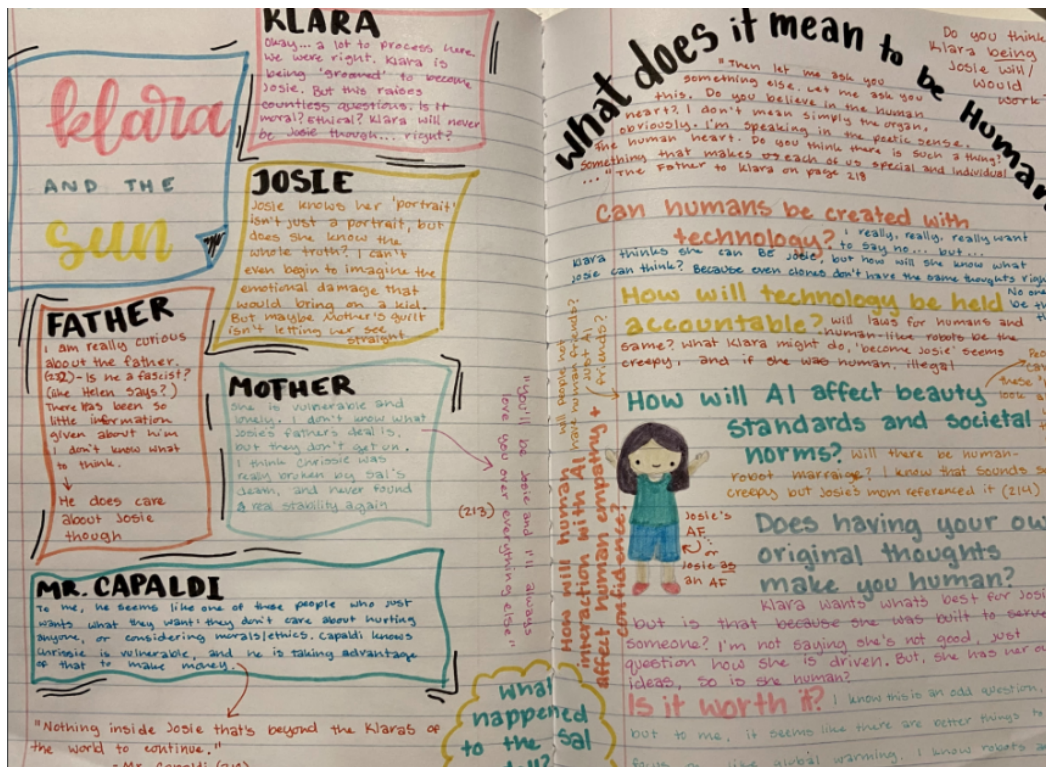 klara
AND THE
sun
KLARA
Okay... a lot to process here
We were right. Klara is
being 'groomed' to become
Josie. But this raises
countless questions. Is it
moral? Ethical? Klara will never
be Josie though... right?
JOSIE
Josie knows her 'portrait'
isn't just a portrait, but
does she know the
whole truth? I can't
even begin to imagine the
emotional damage that
would bring on a kid.
But maybe Mother's guilt
isn't letting her see
straight
FATHER
I am really curious
about the father.
(232) - Is he a fascist?
(like Helen says?)
There has been so
little information
given about him
I don't know what
to think.
He does care
about Josie
though
MOTHER
She is vulnerable and
lonely. I don't know what
Josie's father's deal is,
but they don't get on.
I think Chrissie was
really broken by Sal's
death, and never found
a real stability again
"You'll be Josie and I'll always
love you over everything else."
(213)
MR. CAPALDI
To me, he seems like one of these people who just
wants what they want: they don't care about hurting
anyone, or considering morals/ethics. Capaldi knows
Chrissie is vulnerable, and he is taking advantage
of that to make money.
"Nothing inside Josie that's beyond the Klaras of
the world to continue."
- Mr. Capaldi
What
happened
to the Sal
What does it mean to be Human
Do you think
Klara being
Josie will/
would
work
"Then let me ask you
something else. Let me ask you
this. Do you believe in the human
heart? I don't mean simply the organ,
obviously. I'm speaking in the poetic sense.
The human heart. Do you think there is such a thing?
Something that makes us each of us special and individual
..." The Father to Klara on page 218
Can humans be created with
technology? I really, really, really want
to say no... but...
Klara thinks she can BE Josie, but how will she know what
Josie can think? Because even clones don't have the same thoughts
How will technology be held
accountable? Will laws for humans and
human-like robots be the
same? What Klara might do, 'become Josie' seems
creepy, and if she was human, illegal
No one
be th
How will AI affect beauty
standards and societal
norms? Will there be human-
robot marraige? I know that sounds
creepy but Josie's mom referenced it (214)
these
look
How will human
interaction with AI
affect human empathy +
confidence?
Will people not
have human friends?
Just AI
friends?
Josie's
AF
or
Josie as
an AF
Does having your ow
original thoughts
make you human?
Klara wants whats best for Josi
but is that because she was built to serve
someone? I'm not saying she's not good, just
question how she is driven. But, she has her ow
ideas, so is she human?
Is it worth it? I know this is an odd question,
but to me, it seems like there are better things to
focus on like global warming. I know robots